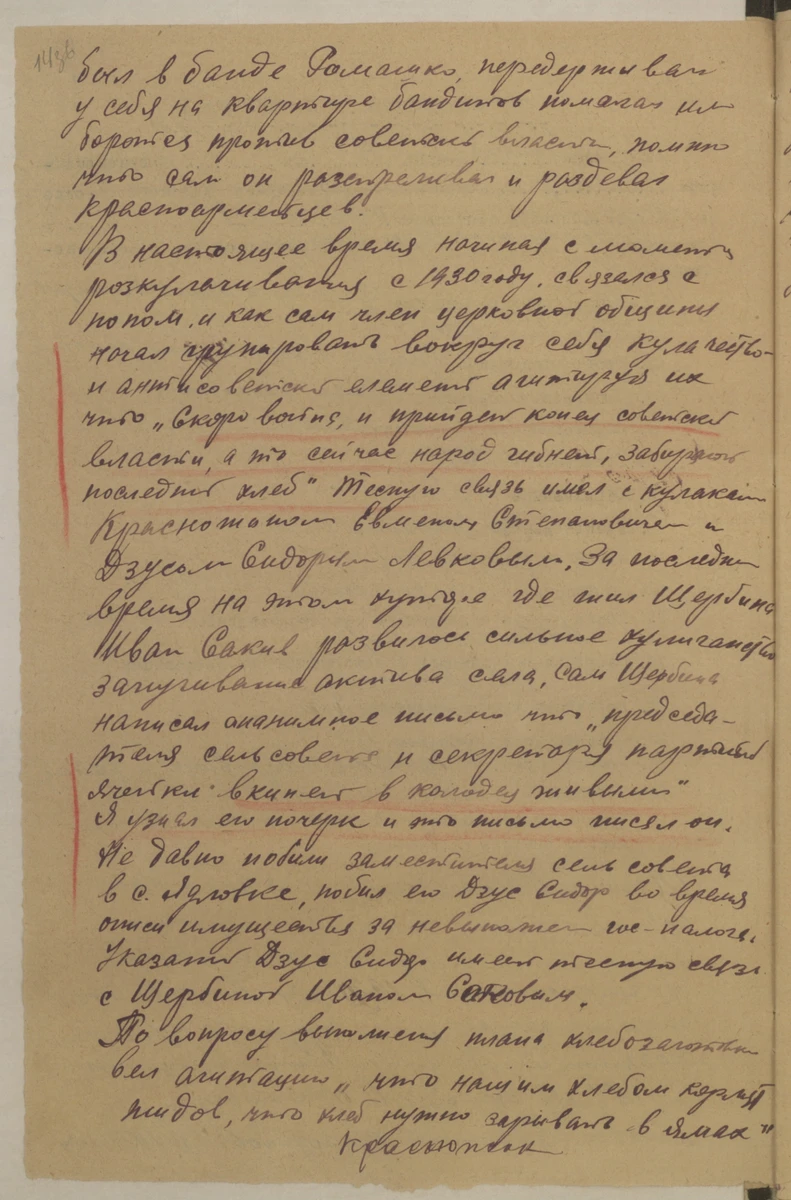 был в банде Ромашко, передерживал
у себя на квартире бандитов помагал им
боротся против советской власти, помню
что сам он розстреливал и роздевал
красноармейцев.
В настоящее время начиная с момента
розкулачивания с 1930 году. связался с
попом, и как сам член церковной общины
начал групировать вокруг себя кулачество-
и антисоветский елемент агитируя их
что „Скоро война, и прийдет конец советской
власти, а то сейчас народ гибнет, забирают
последний хлеб" Тесную связь имел с кулаками
Красножоном Евменом Степановичем и
Дзусом Сидором Левковым, За последнее
время на этом хуторе где жил Щербина
Иван Саков развилось сильное хулиганство
запугивание актива села, Сам Щербина
написал ананимное письмо что „председа-
теля сельсовета и секретаря партийной
ячейки вкинет в колодец живыми"
Я узнал его почерк и это письмо писал он.
Не давно побили заместителя сельсовета
в с. Ядловке, побил его Дзус Сидор во время
описи имущества за невыполнен гос-налога.
Указаный Дзус Сидор имеет тесную связь
с Щербиной Иваном Саковым.
По вопросу выполнения плана хлебозаготовки
вел агитацию „что нашим хлебом кормят
жидов, что хлеб нужно зарывать в ямах"
Красножон